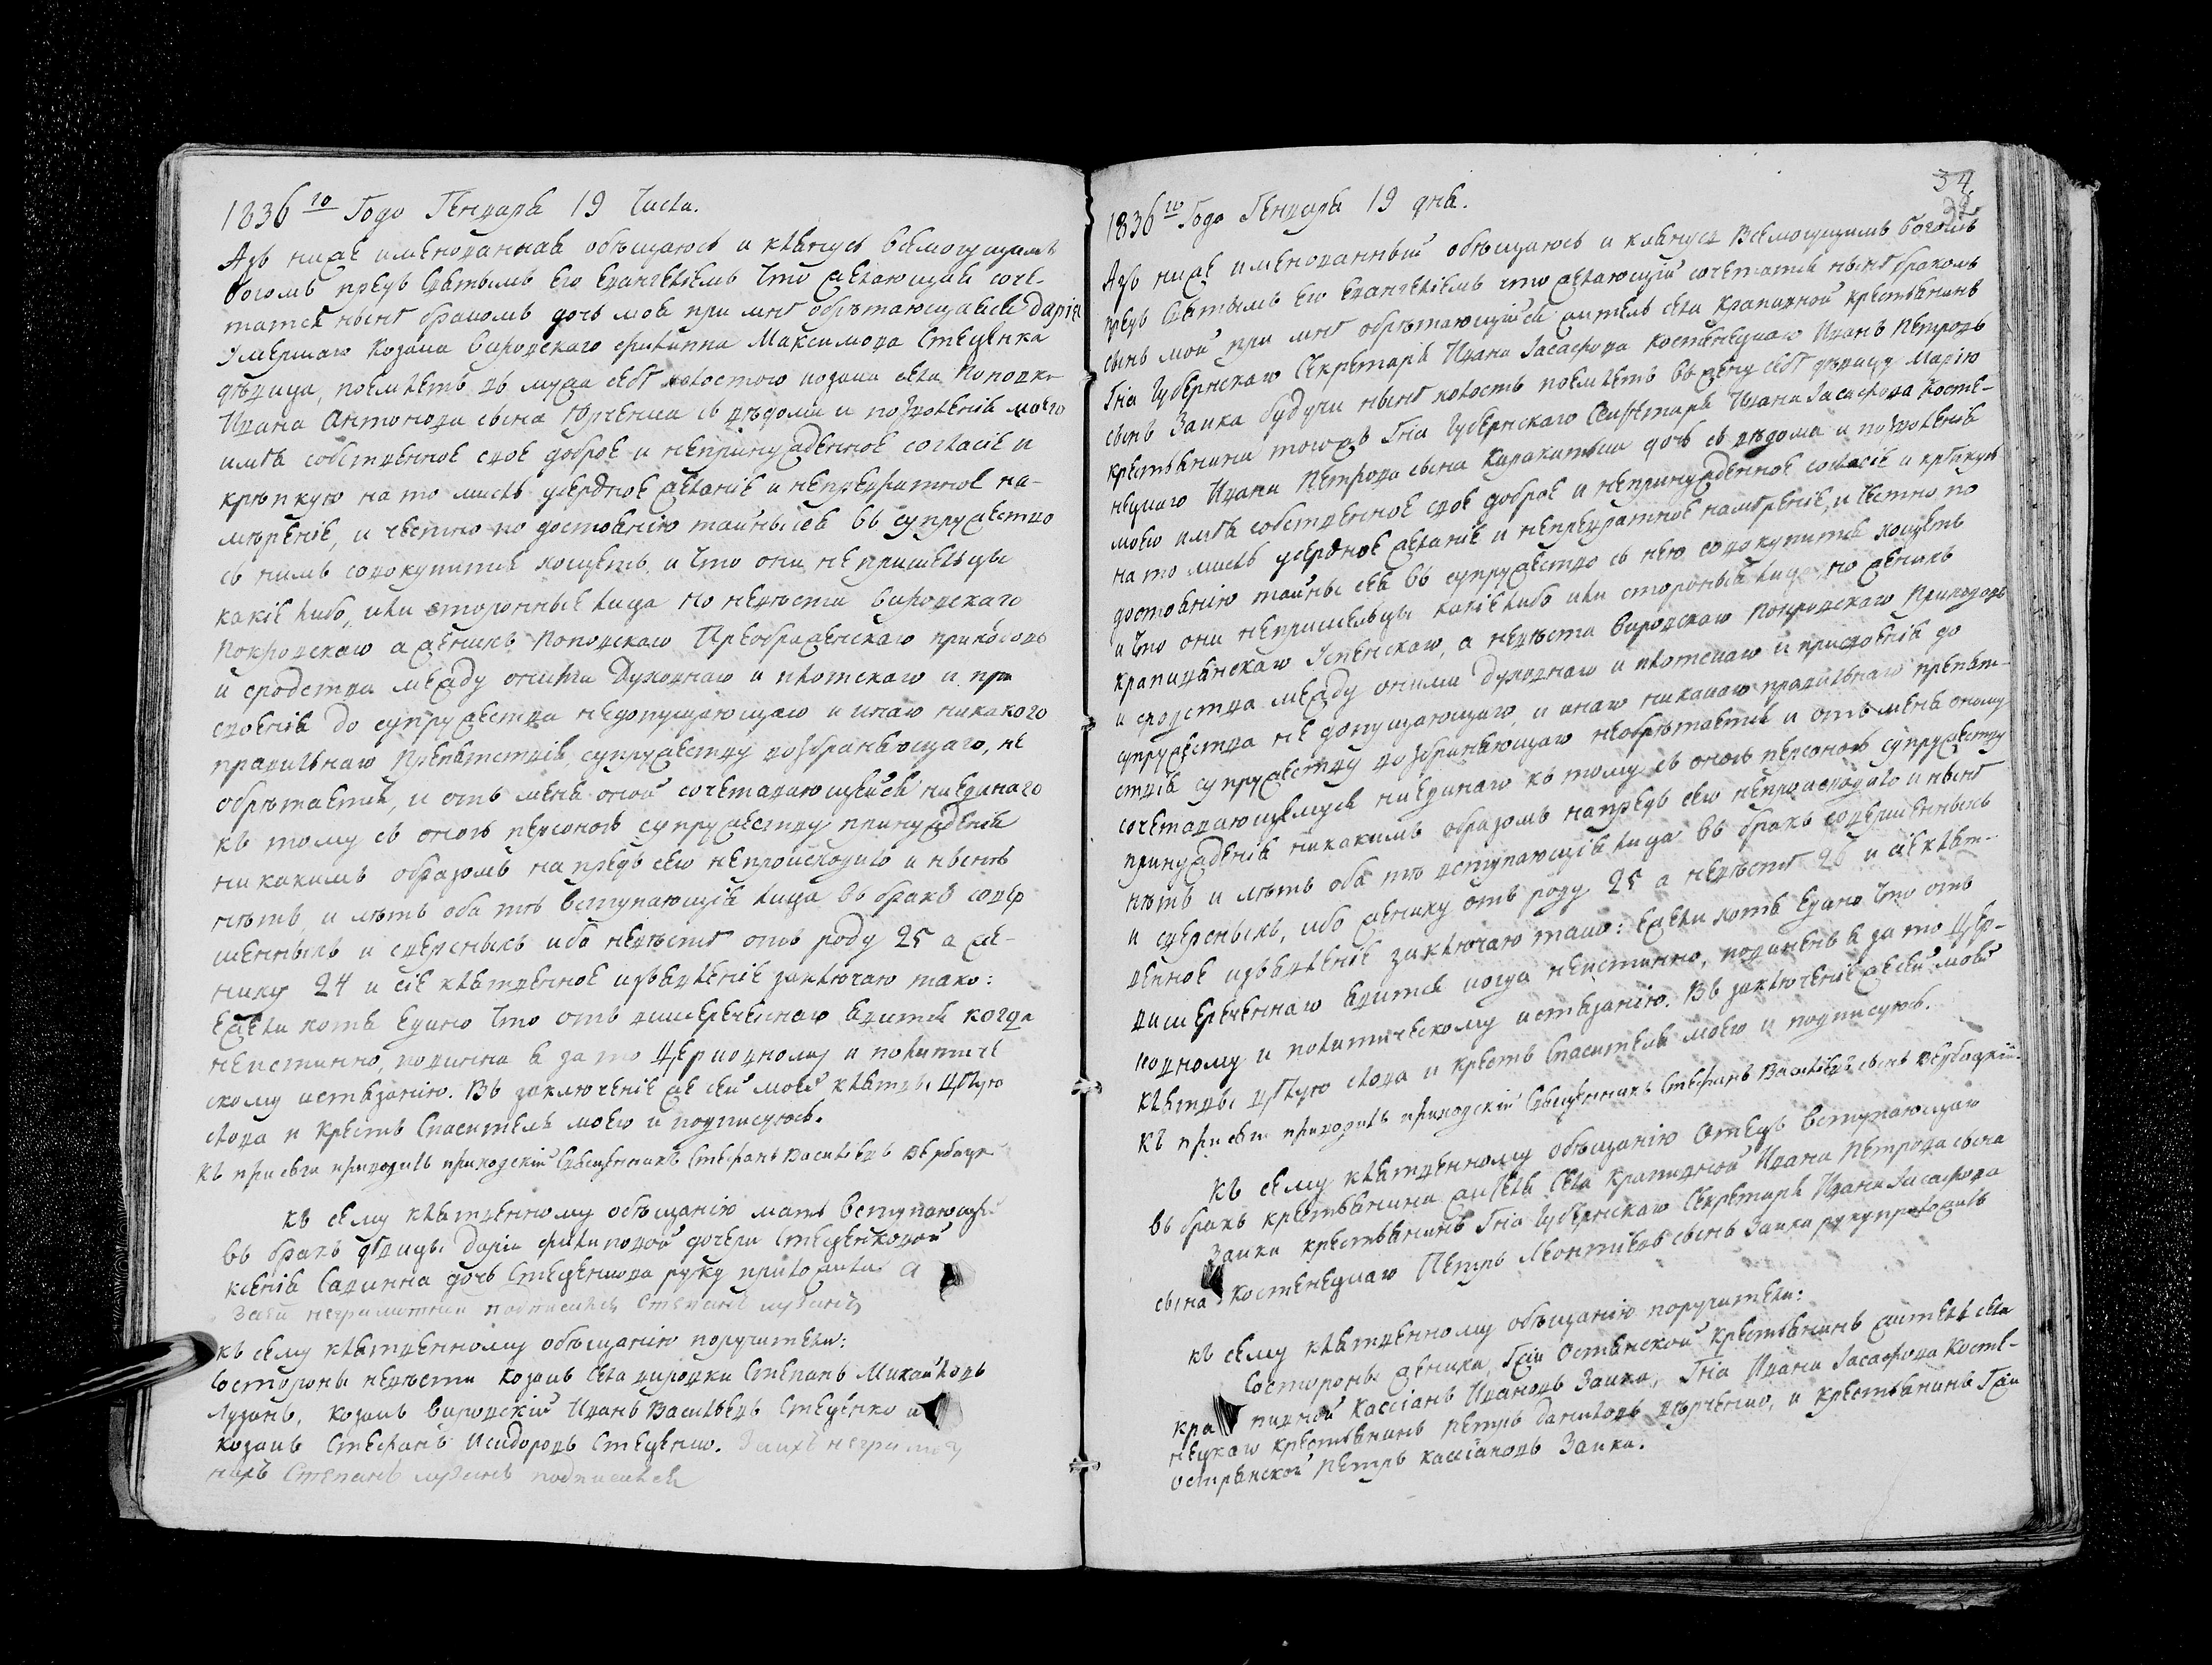 1836го Года Генваря 19 Числа.
Азъ ниже именованная объщаюсь и клянусь всемогущимъ
богомъ предъ святымъ Его Евангелiемъ что желающая соче-
татся нынѣ бракомъ дочь моя при мнѣ обрѣтающаяся Дарiя
Умершаго козака вировскаго филиппа Максимова Стеценка
дѣвица, поемлетъ въ мужа себѣ холостого козака села Поповки
Ивана Антонова сына Юрченка съ вѣдома и позволенiя моего
имѣя собственное свое доброе и непринужденное согласiе и
крѣпкую на то мысль усердное желанiе и непревратное на-
мѣренiе, и честно по достоянiю тайны сея въ супружество
съ нимъ совокупится хощетъ, и что они не пришельцы
какiе либо, или сторонные лица но невѣста вировскаго
Покровскаго а женихъ Поповскаго Преображенскаго приходовъ
и сродства между оными духовнаго и плотскаго и при
своенiя до супружества недопущающаго и инаго никакого
правильнаго Препятствiя, супружеству возбраняющаго, не
обрѣтается, и отъ меня оной сочетавающейся ниединаго
къ тому съ оною персоною супружеству принужденiя
никакимъ образомъ напредь сего непроисходило и нынѣ
нѣтъ, и лѣтъ оба тѣ вступающiя лица въ бракъ совер
шенныхъ и сверсныхъ ибо невѣстѣ отъ роду 25 а же-
ниху 24 и сiе клятвенное изъявленiе заключаю тако:
Ежели хотя Едино что отъ вышереченнаго явится когда
неистинно, повинна я за то Церковному и политиче
скому истязанiю. Въ заключенiе же сей моей клятвы цѣлую
слова и крестъ Спасителя моего и подписуюсь.
къ присяги приводилъ приходскiй Священникъ Стефанъ Васильевъ
къ сему клятвенному обѣщанiю мать вступающей
въ бракъ дѣвицы Дарiи филиповой дочери Стеценковой
Ксенiя Саввина дочь Стеценкова руку приложила а
за ей неграмотной подписался Степанъ лузанъ
къ сему клятвенному обѣщанiю поручители:
Состороны невѣсти Козакъ села вировки Степанъ Михайловъ
Лузанъ, козакъ вировскiй Иванъ Васильевъ Стеценко и
козакъ Стефанъ Исидоровъ Стеценко. За ихъ неграмот
ныхъ Степанъ лузанъ подписался
34
1836го Года Генваря 19 дня.
Азъ ниже именованный объщаюсь и клянусь всемогущимъ богомъ
предъ святымъ Его Евангелiемъ что желающiй сочетатся нынѣ бракомъ
сынъ мой при мнѣ обрѣтающiйся житель села Крапивной крестьянинъ
Гна Губернскаго Секретаря Ивана Iасафова костенецкаго Иванъ Петровъ
сынъ Заика будучи нынѣ холостъ поемлетъ въ жену себѣ дѣвицу Марiю
крестьянина тогожъ Гна Губернскаго Секретаря Ивана Iасафова Косте-
нецкаго Ивана Петрова сына дочь съ вѣдома и позволенiя
моего имѣя собственное свое доброе и непринужденное согласiе и крѣпкую
на то мысль усердное желанiе и непревратное намѣренiе, и честно по
достоянiю тайны сея въ супружество съ нею совокупится хощетъ
и что они непришельцы какiе либо или стороныя лица, но женихъ
крапивянскаго Успенскаго, а невѣста вировскаго покровскаго приходовъ
и сродства между оными духовнаго и плотскаго и присвоенiя до
супружества не допущающаго, и инаго никакого правильнаго препят-
ствiя супружеству возбраняющаго необрѣтается и отъ меня оному
сочетавающемуся ниединаго къ тому съ оною персоною супружеству
принужденiя никакимъ образомъ напредь сего непроисходило и нынѣ
нѣтъ и лѣтъ оба тѣ вступающiя лица въ бракъ совершенныхъ
и сверсныхъ, ибо жениху отъ роду 25 а невѣстѣ 20 и сiе клят-
венное изъявленiе заключаю тако: Ежели хотя Едино что отъ
вишереченнаго явится когда неистинно, повиненъ я за то Цер-
ковному и политическому истязанiю. Въ заключенiе же сей моей
клятвы цѣлую слова и крестъ Спасителя моего и подписуюсь.
къ присяги приводилъ приходскiй Священникъ Стефанъ Васильевъ сынъ
къ сему клятвенному обѣщанiю Отецъ вступающаго
въ бракъ крестьянина жителя села Крапивной Ивана Петрова сына
Заики крестьянинъ Гна Губернскаго Секретаря Ивана Iасафова
сына костенецкаго Петръ Леонтiевъ сынъ Заика руку приложилъ
къ сему клятвенному обѣщанiю поручители:
Состороны жениха, Гжи Остянской крестьянинъ житель села
крапивной Кассiанъ Ивановъ Заика, Гна Ивана Iасафова Косте-
нецкаго крестьянинъ Петръ Даниловъ и крестьянинъ Гжи
Петръ кассiановъ Заика.